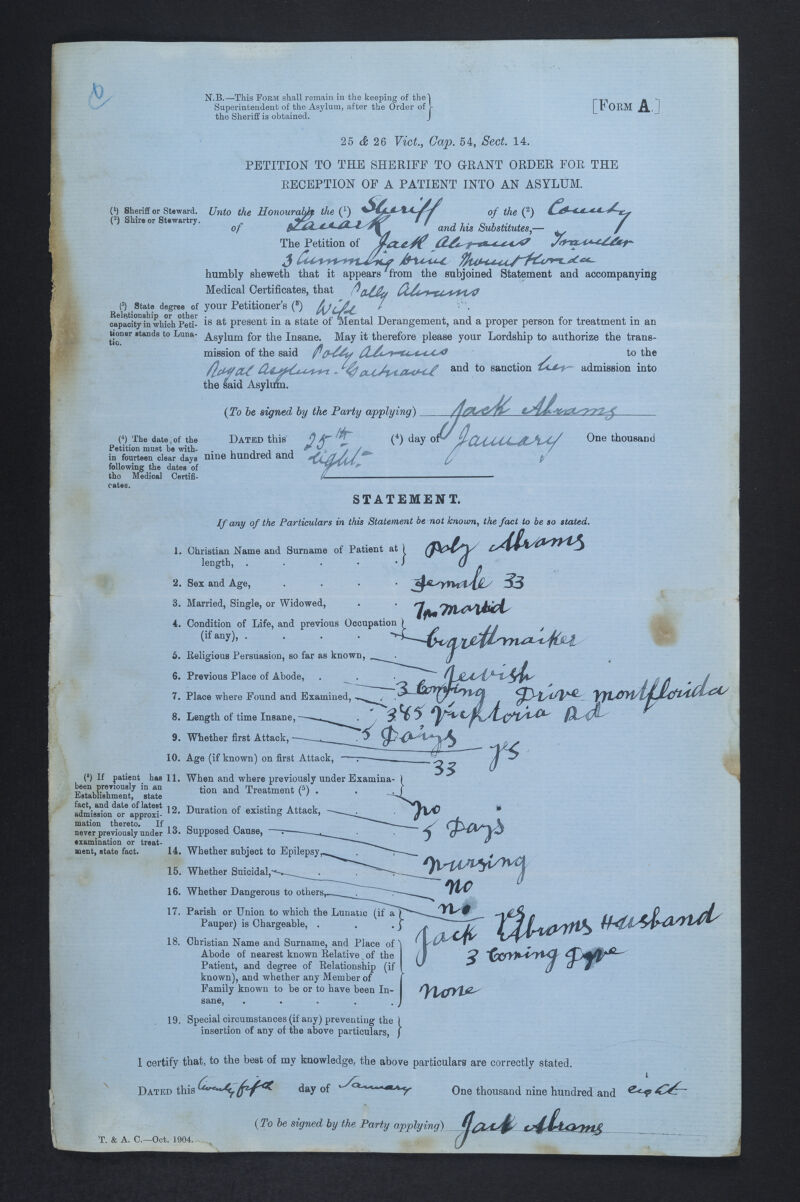 N.B.—This Form shall remain in the keeping of the
Superintendent of the Asylum, after the Order of
the Sheriff is obtained.
[Form A.]
25 & 26 Vict., Cap. 54, Sect. 14.
PETITION TO THE SHERIFF TO GRANT ORDER FOR THE
RECEPTION OF A PATIENT INTO AN ASYLUM.
(¹) Sheriff or Steward.
(²) Shire or Stewartry.
Unto the Honourable the (¹) Sheriff of the (²) County
of Lanark and his Substitutes,—
The Petition of Jack Abrams Traveller
3 Cumming Drive Mount Florida
humbly sheweth that it appears from the subjoined Statement and accompanying
Medical Certificates, that Polly Abrams
(³) State degree of
Relationship or other
capacity in which Peti-
tioner stands to Luna-
tic.
your Petitioner's (³) Wife
is at present in a state of Mental Derangement, and a proper person for treatment in an
Asylum for the Insane. May it therefore please your Lordship to authorize the trans-
mission of the said Polly Abrams to the
Royal Asylum - Gartnavel and to sanction her admission into
the said Asylum.
(To be signed by the Party applying) Jack Abrams
(⁴) The date of the
Petition must be with-
in fourteen clear days
following the dates of
the Medical Certifi-
cates.
Dated this 25th (⁴) day of January One thousand
nine hundred and eight.
STATEMENT.
If any of the Particulars in this Statement be not known, the fact to be so stated.
1. Christian Name and Surname of Patient at
length, . . . . . Poly Abrams
2. Sex and Age, . . . . female 33
3. Married, Single, or Widowed, . . Married
4. Condition of Life, and previous Occupation
(if any), . . . . . Cigrettmaiker
5. Religious Persuasion, so far as known, Jewish
6. Previous Place of Abode, . . . 3 Coming Drive montflorida
7. Place where Found and Examined, 385 Vicktoria Rd
8. Length of time Insane, 5 Days
9. Whether first Attack, yes
10. Age (if known) on first Attack, 33
(⁵) If patient has
been previously in an
Establishment, state
fact, and date of latest
admission or approxi-
mation thereto. If
never previously under
examination or treat-
ment, state fact.
11. When and where previously under Examina-
tion and Treatment (⁵) . . . no
12. Duration of existing Attack, 5 Days
13. Supposed Cause, Nursing
14. Whether subject to Epilepsy, no
15. Whether Suicidal, no
16. Whether Dangerous to others, yes
17. Parish or Union to which the Lunatic (if a
Pauper) is Chargeable, . . .
18. Christian Name and Surname, and Place of
Abode of nearest known Relative of the
Patient, and degree of Relationship (if
known), and whether any Member of
Family known to be or to have been In-
sane, . . . . .
Jack Abrams Hausband
3 Coming
none
19. Special circumstances (if any) preventing the
insertion of any of the above particulars,
I certify that, to the best of my knowledge, the above particulars are correctly stated.
Dated this twenty fifth day of January One thousand nine hundred and eight
(To be signed by the Party applying) Jack Abrams
T. & A. C.—Oct. 1904.